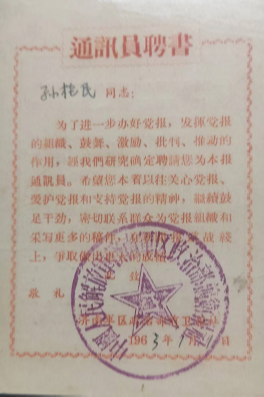 通訊員聘書
孙 民 同志：
为了进一步办好党报，发揮党报
的組織、鼓舞、激励、批判、推动的
作用，經我們研究确定聘請您为本报
通訊員。希望您本着以往关心党报、
爱护党报和支持党报的精神，繼續鼓
足干劲，密切联系群众为党报組織和
采写更多的稿件，
上，爭取做出更大的成績。
此 致
敬 礼
1963年 月 日